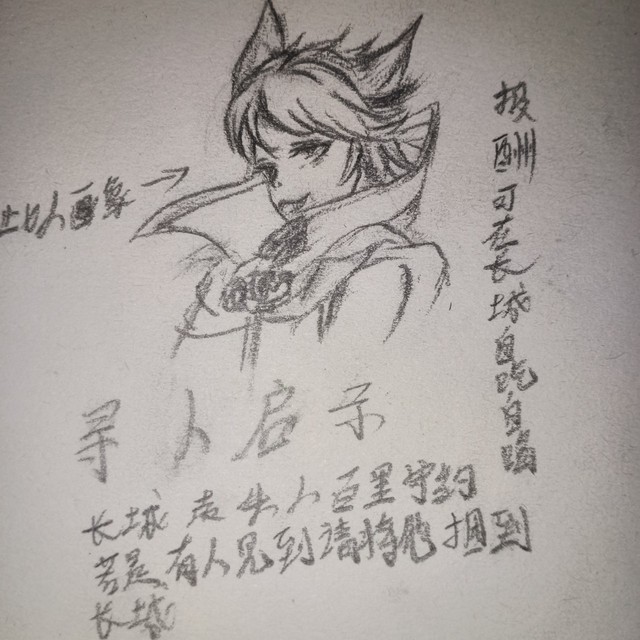 此人画象
报酬可在长城自吃自消
寻人启示
长城走失人百里守约
若是有人见到请将他捆到
长城